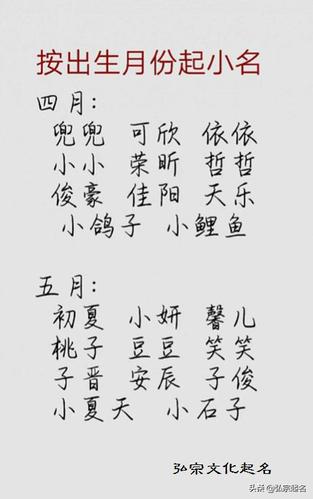 按出生月份起小名
四月:
兜兜 可欣 依依
小小 荣昕 哲哲
俊豪 佳阳 天乐
小鸽子 小鲤鱼
五月:
初夏 小妍 馨儿
桃子 豆豆 笑笑
子晋 安辰 子俊
小夏天 小石子
弘宗文化起名
头条@弘宗起名